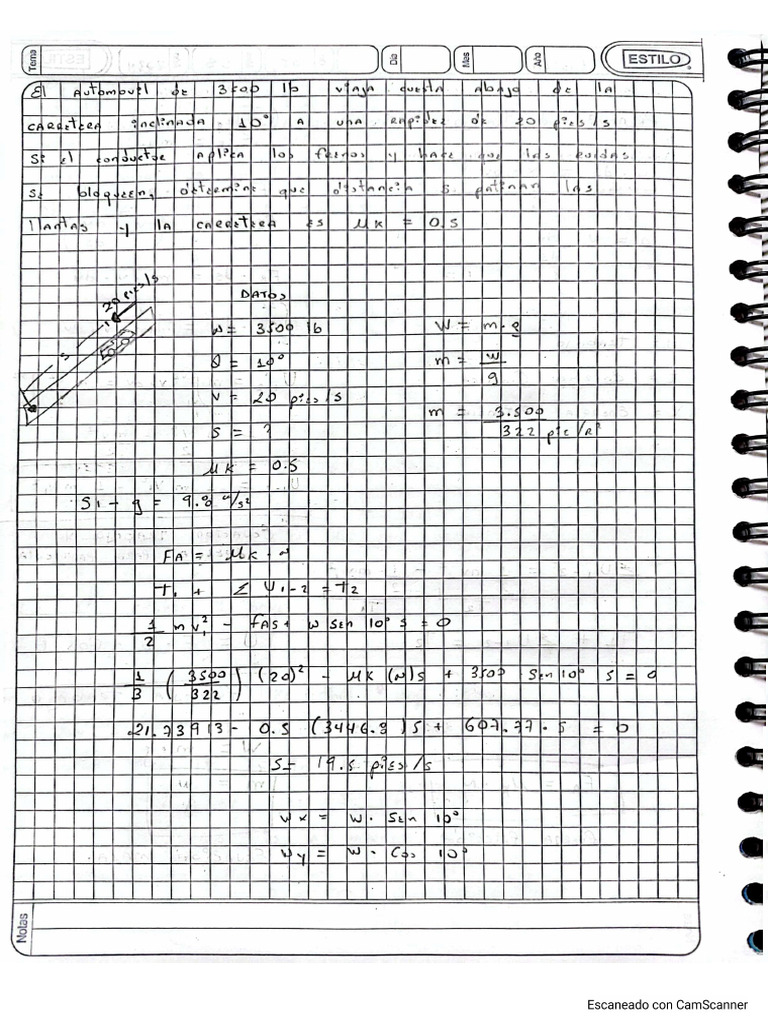 Tema
Dia
Mes
Año
ESTILO
El Automovil de 3500 lb viaja cuesta abajo de la
carretera inclinada 10° a una rapidez de 20 pies/s
Si el conductor aplica los frenos y hace que las ruedas
se bloqueen, determine que distancia s patinan las
llantas y la carretera es μK = 0.5
20 pies/s
s
DATOS
W = 3500 lb
W = m.g
θ = 10°
m = w/g
V = 20 pies/s
m = 3.500/322 pie/
S = ?
μK = 0.5
Si - g = 9.8 m/s²
FA = μK .
T1 + Σ U1-2 = T2
1/2 mv1² - fAS + w Sen 10° s = 0
1/3 (3500/322) (20)² - μK (N)s + 3500 Sen 10° s = 0
21.73913 - 0.5 (3446.8)s + 607.77.s = 0
S= 19.5 pies/s
Wx = W. Sen 10°
Wy = W. Cos 10°
Notas
Escaneado con CamScanner